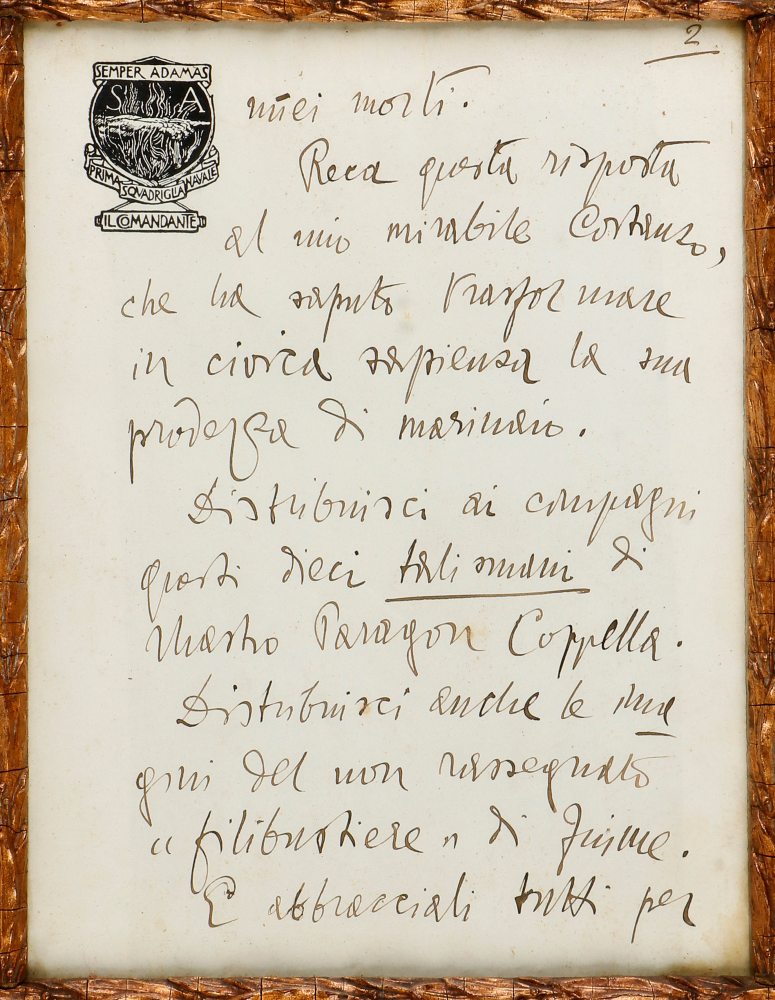 2
SEMPER ADAMAS
S A
PRIMA SQUADRIGLIA NAVALE
IL COMANDANTE
miei morti.
Reca questa risposta
al mio mirabile Costanzo,
che ha saputo trasformare
in civica sapienza la sua
prodezza di marinaio.
Distribuisci ai compagni
questi dieci talismani di
Mastro Paragon Coppella.
Distribuisci anche le ima
gini del non rassegnato
"filibustiere" di Fiume.
E abbracciali tutti per